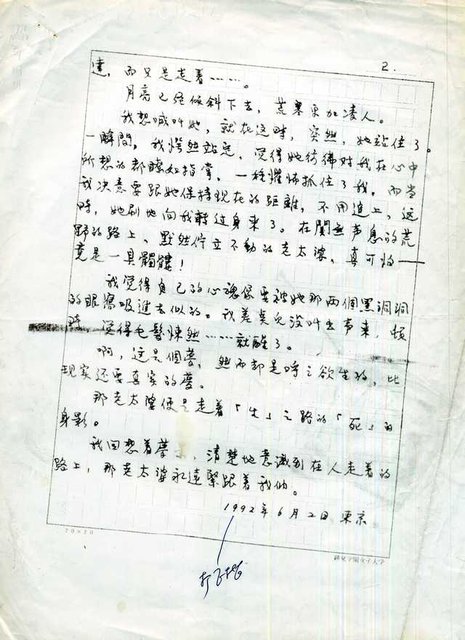 2.
達，而只是走着……。
月亮已經傾斜下去，荒寒更加凄人。
我想喊叫她，就在这時，突然，她站住了。
一瞬間，我愕然站定，覺得她彷彿对我在心中
所想的都瞭如指掌，一种懼怖抓住了我。而当
我决意要跟她保持现在的距離，不用追上，这
時，她刷地向我轉过身来了。在闃無声息的荒
野的路上，默然佇立不動的老太婆，真可怕——
竟是一具髑髏！
我覺得自己的心魂像要被她那两個黑洞洞
的眼窩吸進去似的。我差点兒没叫出声来，頓
時，覺得毛髮悚然……就醒了。
啊，这是個夢，然而却是呼之欲生的，比
现实还要真实的夢。
那老太婆便是走着「生」之路的「死」的
身影。
我回想着夢，清楚地意識到在人走着的
路上，那老太婆永遠緊跟着我们。
1992年6月2日 東京
20×20